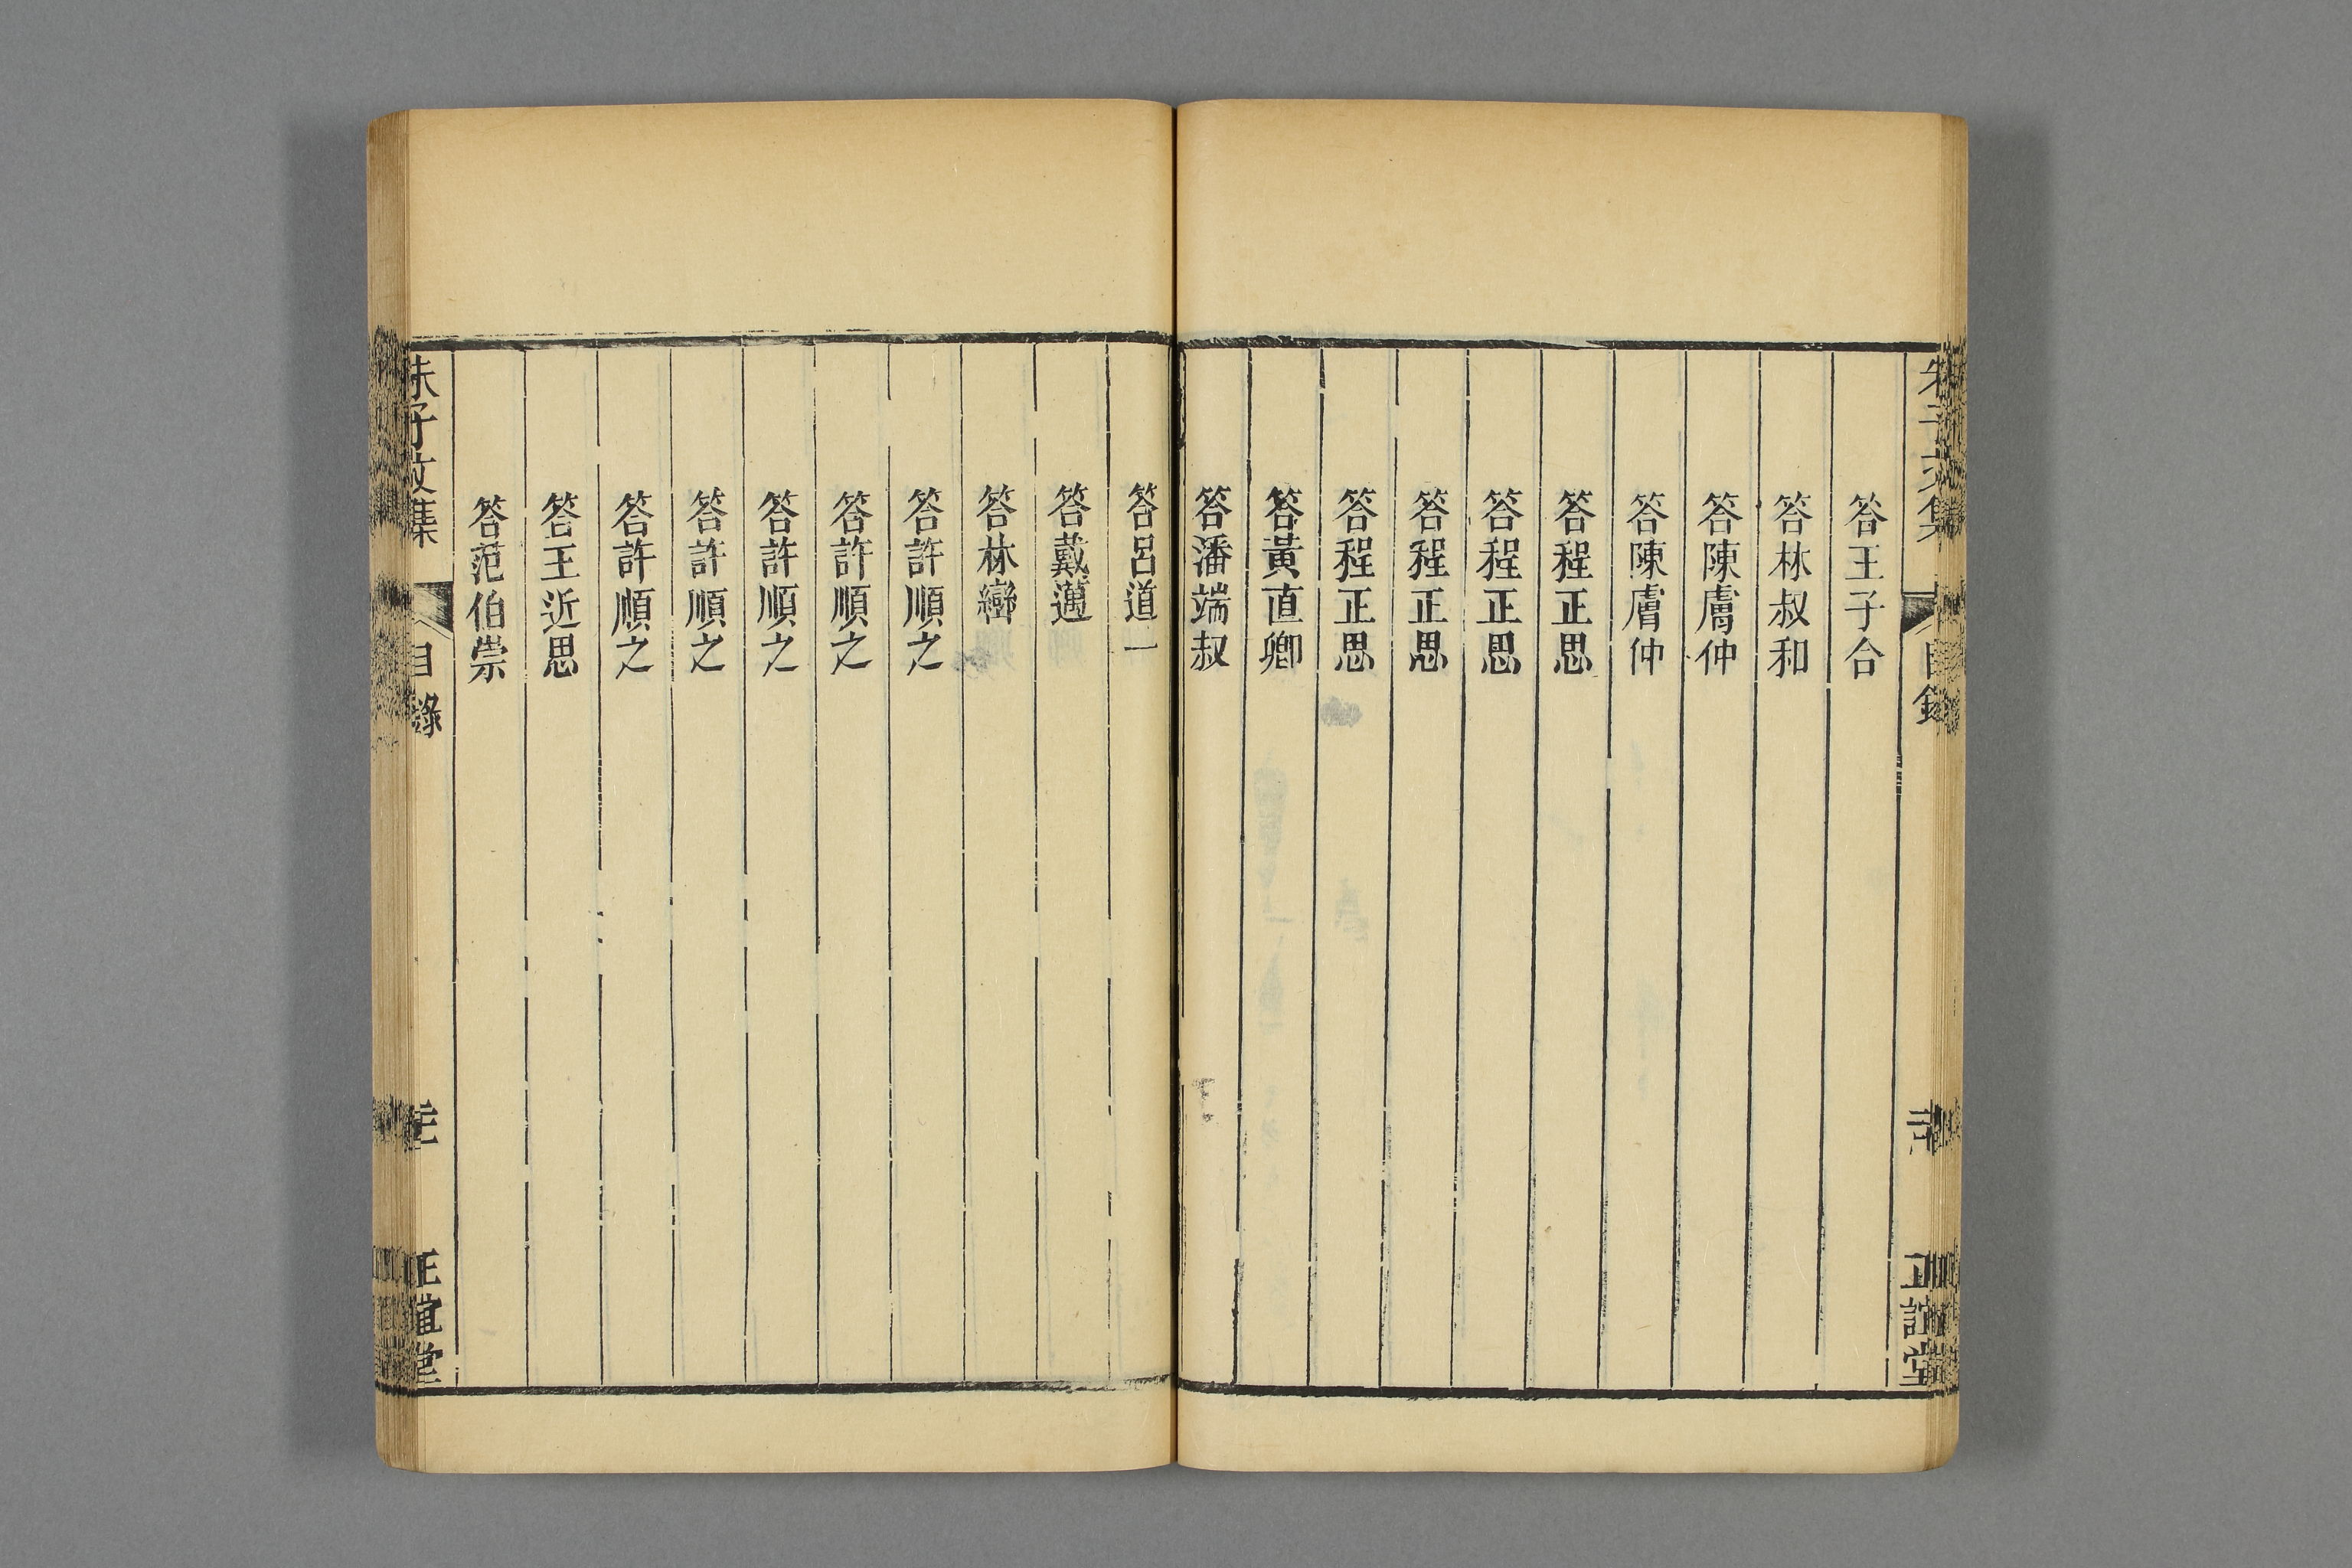 朱子文集
目錄
正誼堂
答王子合
答林叔和
答陳膚仲
答陳膚仲
答程正思
答程正思
答程正思
答程正思
答黃直卿
答潘端叔
答呂道一
答戴邁
答林巒
答許順之
答許順之
答許順之
答許順之
答許順之
答王近思
答范伯崇
朱子文集
目錄
正誼堂